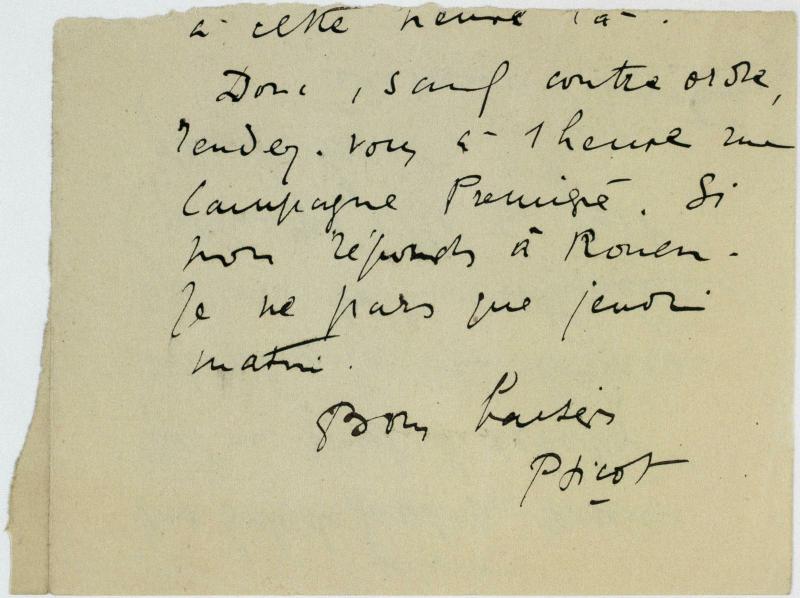 à cette heure là.
Donc, sauf contre ordre,
rendez-vous à 1 heure rue
Campagne Première. Si
non réponds à Rouen.
Je ne pars que jeudi
matin.
Bons baisers